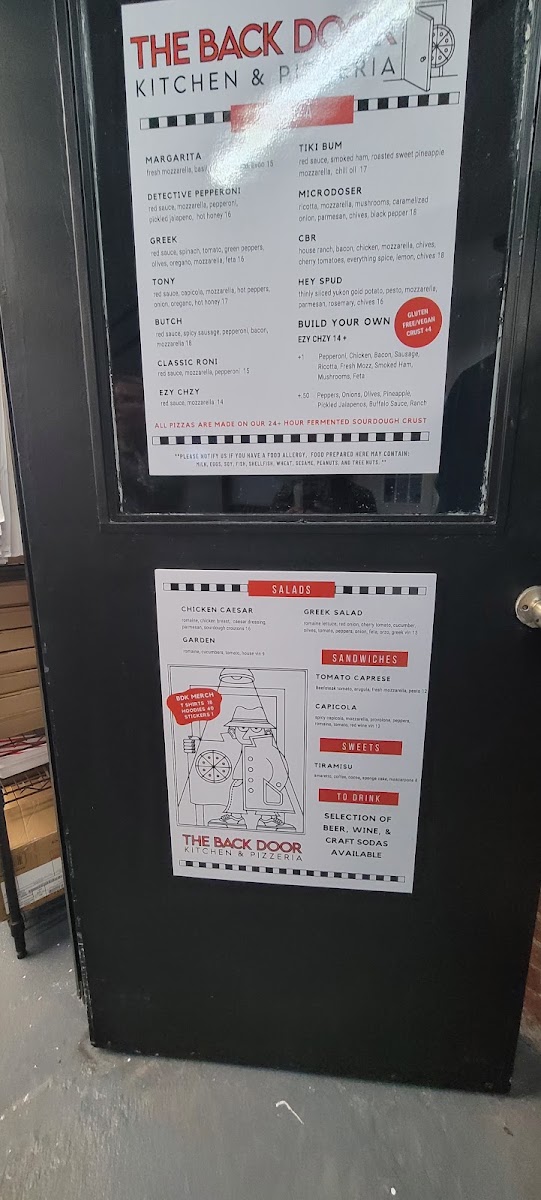 THE BACK DOOR
KITCHEN & PIZZERIA
MARGARITA
fresh mozzarella, evoo 15
DETECTIVE PEPPERONI
red sauce, mozzarella, pepperoni,
pickled jalapeno, hot honey 16
GREEK
red sauce, spinach, tomato, green peppers,
olives, oregano, mozzarella, feta 16
TONY
red sauce, capicola, mozzarella, hot peppers,
onion, oregano, hot honey 17
BUTCH
red sauce, spicy sausage, pepperoni, bacon,
mozzarella 18
CLASSIC RONI
red sauce, mozzarella, pepperoni 15
EZY CHZY
red sauce, mozzarella 14
TIKI BUM
red sauce, smoked ham, roasted sweet pineapple
mozzarella, chili oil 17
MICRODOSER
ricotta, mozzarella, mushrooms, caramelized
onion, parmesan, chives, black pepper 16
CBR
house ranch, bacon, chicken, mozzarella, chives,
cherry tomatoes, everything spice, lemon, chives 18
HEY SPUD
thinly sliced yukon gold potato, pesto, mozzarella,
parmesan, rosemary, chives 16
BUILD YOUR OWN
EZY CHZY 14 +
+1 Pepperoni, Chicken, Bacon, Sausage,
Ricotta, Fresh Mozz, Smoked Ham,
Mushrooms, Feta
+.50 Peppers, Onions, Olives, Pineapple,
Pickled Jalapenos, Buffalo Sauce, Ranch
GLUTEN
FREE/VEGAN
CRUST +4
ALL PIZZAS ARE MADE ON OUR 24+ HOUR FERMENTED SOURDOUGH CRUST
**PLEASE NOTIFY US IF YOU HAVE A FOOD ALLERGY. FOOD PREPARED HERE MAY CONTAIN:
MILK, EGGS, SOY, FISH, SHELLFISH, WHEAT, SESAME, PEANUTS, AND TREE NUTS. **
SALADS
CHICKEN CAESAR
romaine, chicken breast, caesar dressing,
parmesan, sourdough croutons
GARDEN
romaine, cucumbers, tomato, house vin
GREEK SALAD
romaine lettuce, red onion, cherry tomato, cucumber,
olives, tomato, peppers, onion, feta, orzo, greek vin
SANDWICHES
TOMATO CAPRESE
beefsteak tomato, arugula, fresh mozzarella, pesto 12
CAPICOLA
spicy capicola, mozzarella, provolone, peppers,
romaine, tomato, red wine vin 13
SWEETS
TIRAMISU
amaretto, coffee, cocoa, sponge cake, mascarpone
TO DRINK
SELECTION OF
BEER, WINE, &
CRAFT SODAS
AVAILABLE
BDK MERCH
T SHIRTS
HOODIES 40
STICKERS 1
THE BACK DOOR
KITCHEN & PIZZERIA